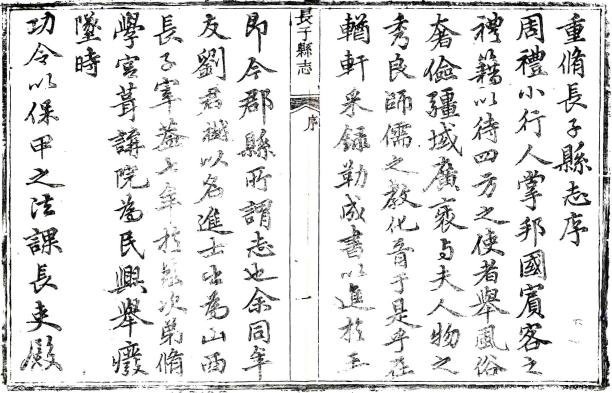 重脩長子縣志序
周禮小行人掌邦國賓客之
禮籍以待四方之使者舉風俗
奢儉疆域廣袤与夫人物之
秀良師儒之敎化胥于是乎在
輶軒采錄勒成書以進於王
長子縣志
序
一
即今郡縣所謂志也余同年
友劉君樾以名進士出為山西
長子宰蓋七年於茲次第脩
學宮葺講院為民興舉廢
墜時
功令以保甲之法課長吏殿